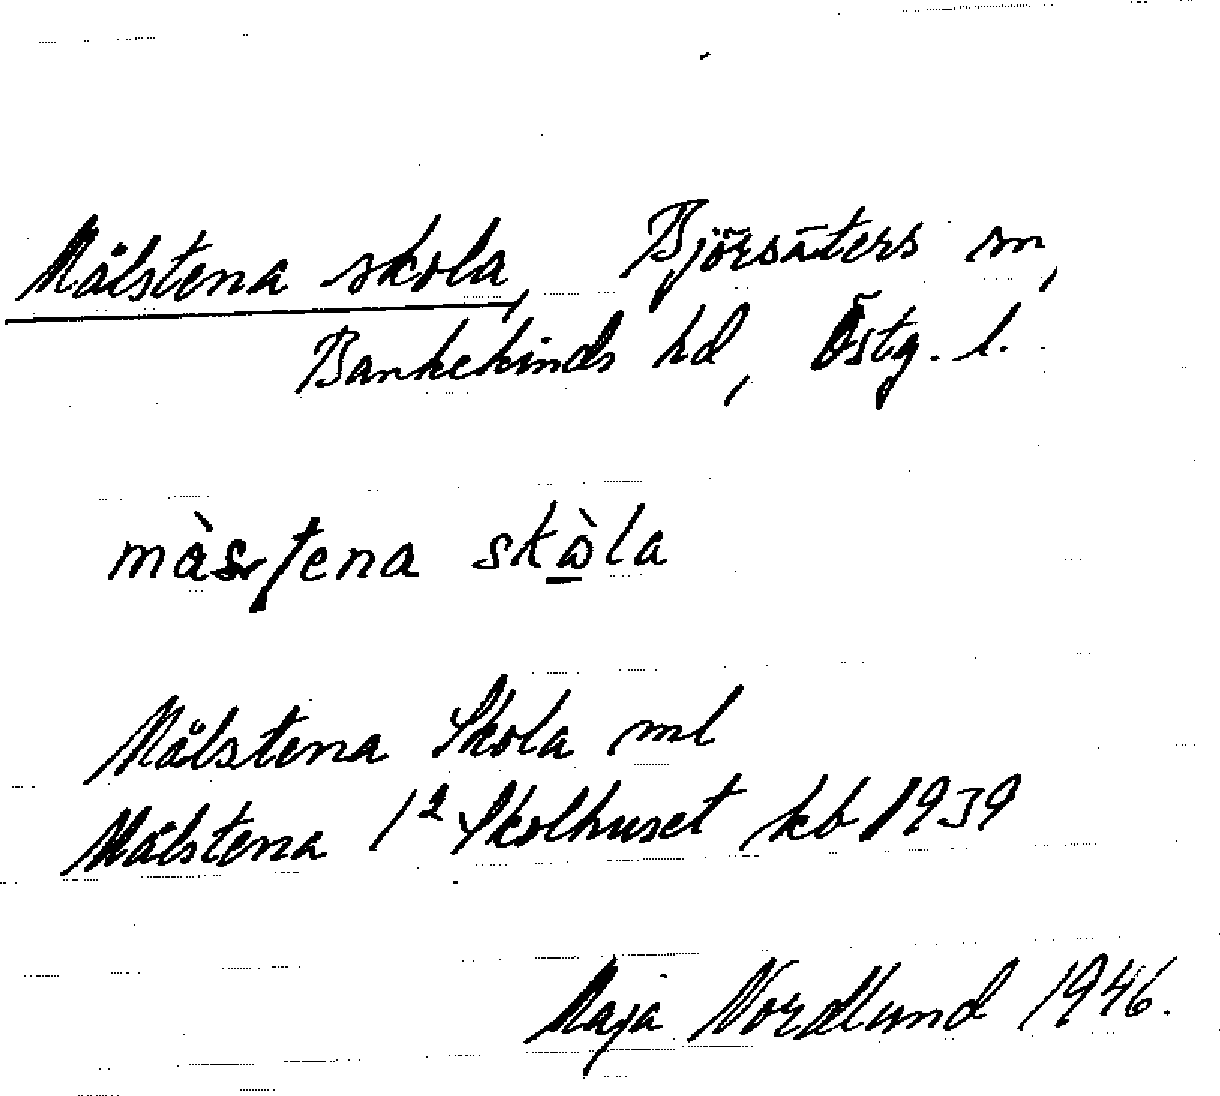 Målstena skola, Björsäters sn,
Bankekinds hd, Östg. l.
skola
Målstena Skola ml
Målstena 1² Skolhuset kb 1939
Maja Nordlund 1946.